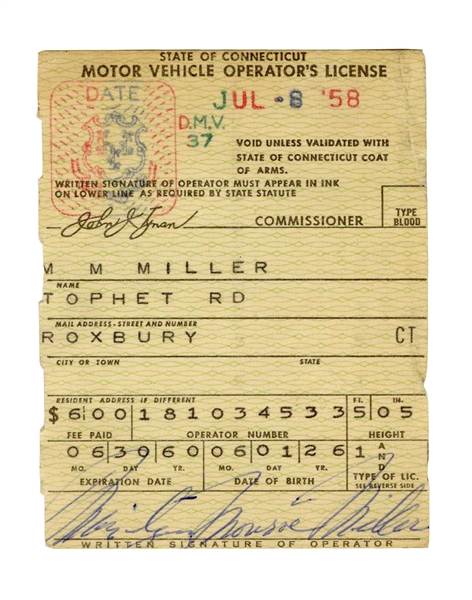 STATE OF CONNECTICUT
MOTOR VEHICLE OPERATOR'S LICENSE
DATE JUL - 8 '58
D.M.V.
37
VOID UNLESS VALIDATED WITH
STATE OF CONNECTICUT COAT
OF ARMS.
WRITTEN SIGNATURE OF OPERATOR MUST APPEAR IN INK
ON LOWER LINE AS REQUIRED BY STATE STATUTE
COMMISSIONER
TYPE
BLOOD
M M MILLER
NAME
TOPHET RD
MAIL ADDRESS - STREET AND NUMBER
ROXBURY CT
CITY OR TOWN STATE
RESIDENT ADDRESS IF DIFFERENT FT. IN.
$6 00 181034533 5 05
FEE PAID OPERATOR NUMBER HEIGHT
06 30 60 06 01 26 1 AND
MO. DAY YR. MO. DAY YR. TYPE OF LIC.
EXPIRATION DATE DATE OF BIRTH SEE REVERSE SIDE
Marilyn Monroe Miller
WRITTEN SIGNATURE OF OPERATOR